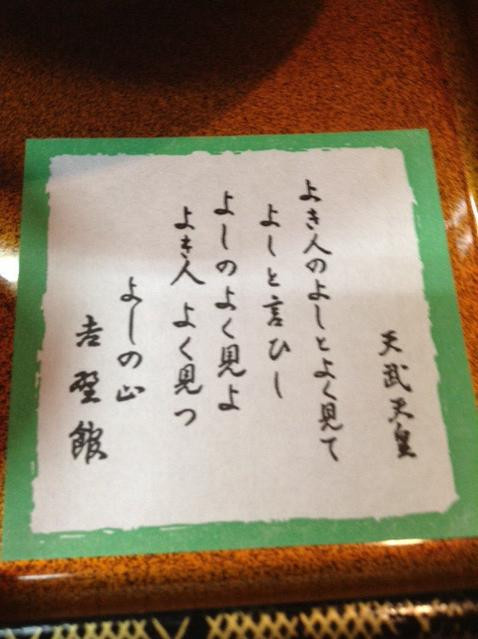 天武天皇
よき人のよしとよく見て
よしと言ひし
よしのよく見よ
よき人よく見つ
よしの山
吉野館